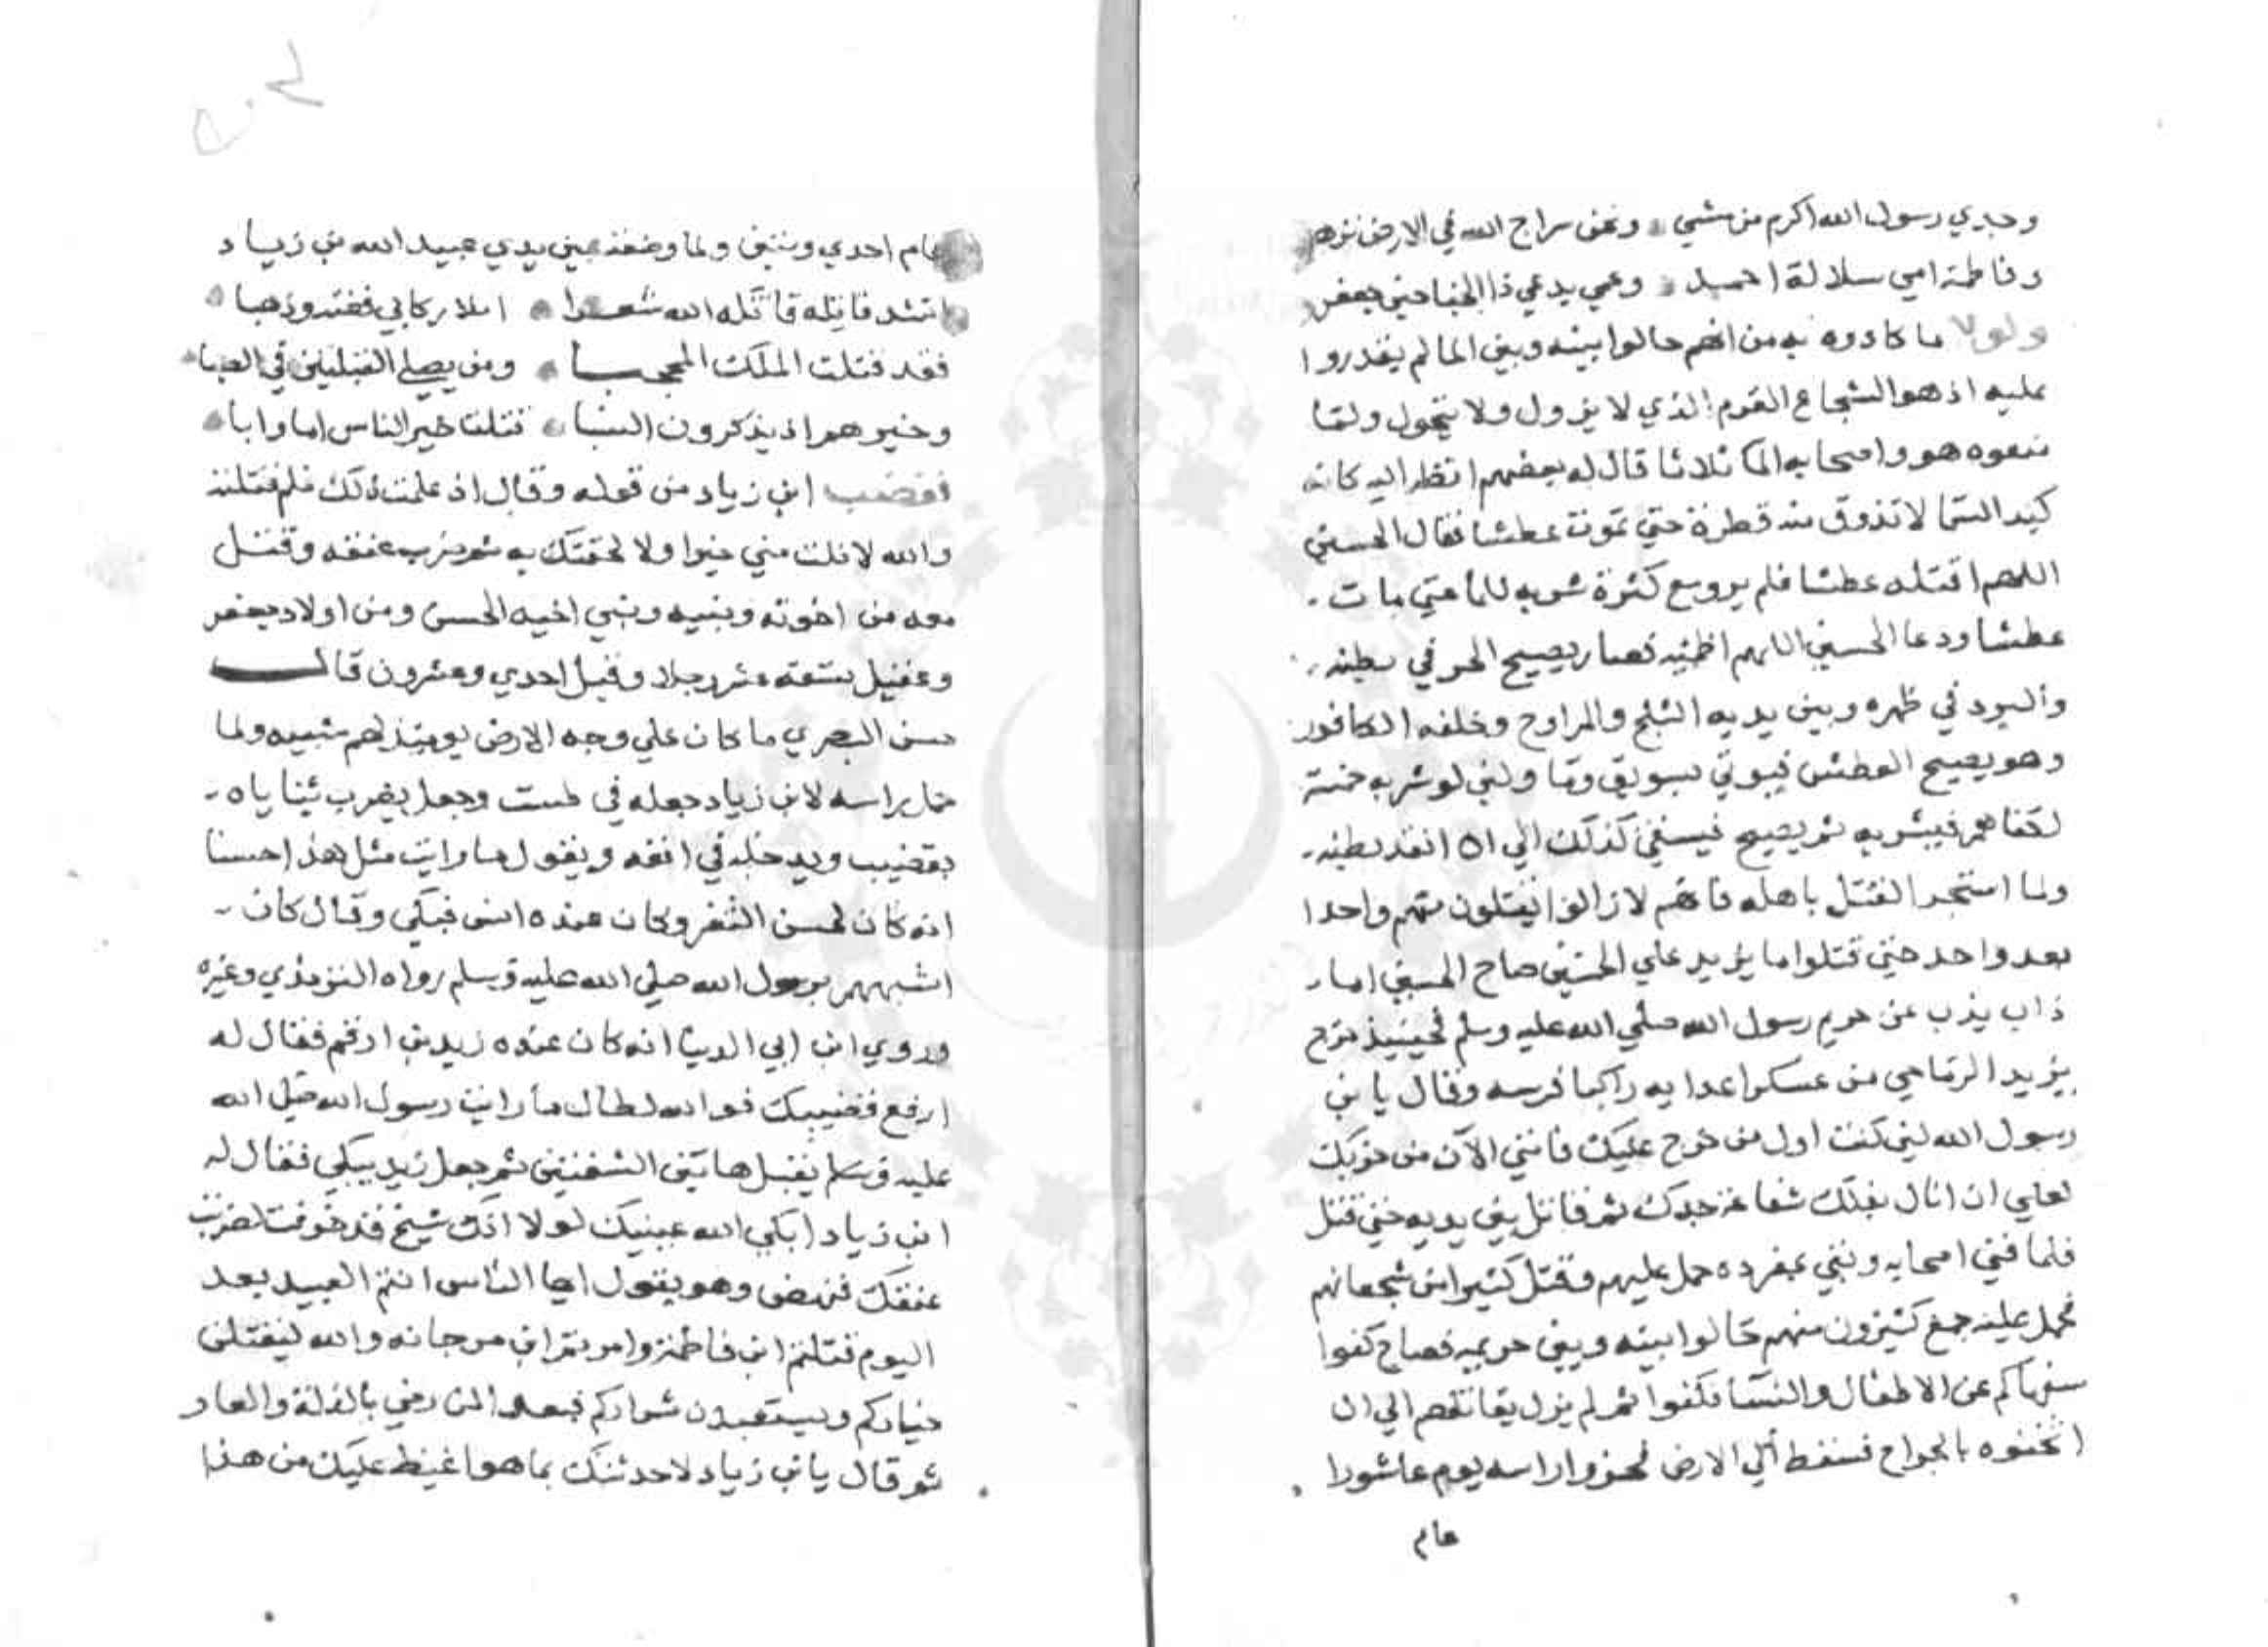 وجدي رسول الله اكرم من مشي ونحن سراج الله في الارض نزهر
وفاطمة امي سلالة احمد وعمي يدعي ذا الجناحين جعفر
ولولا ما كادوه به من انهم حالوا بينه وبين الما لم يقدروا
عليه اذ هو الشجاع القوم الذي لا يزول ولا يتحول ولما
منعوه هو واصحابه الما ثلاثا قال له بعضهم انظر اليه كانه
كبد السما لا تذوق منه قطرة حتي تموت عطشا فقال الحسين
اللهم اقتله عطشا فلم يرو مع كثرة شربه للما حتي مات
عطشا ودعا الحسين اللهم اظمئه فصار يصيح الحر في بطنه
والبرد في ظهره وبين يديه الثلج والمراوح وخلفه الكافور
وهو يصيح العطش فيوتي بسويق وما ولبن لو شربه خمسة
لكفاهم فيشربه ثم يصيح فيسقي كذلك الي ان انقد بطنه
ولما استحر القتل باهله فانهم لا زالوا يقتلون منهم واحدا
بعد واحد حتي قتلوا ما يزيد علي الحسين صاح الحسين اما
ذاب يذب عن حريم رسول الله صلي الله عليه وسلم فحينيذ خرج
يزيد الرياحي من عسكر اعدايه راكبا فرسه وقال يا بن
رسول الله لين كنت اول من خرج عليك فانني الآن من حزبك
لعلي ان انال بذلك شفاعة جدك ثم قاتل بين يديه حتي قتل
فلما فني اصحابه وبقي بمفرده حمل عليهم وقتل كثيرا من شجعانهم
فحمل عليه جمع كثيرون منهم حالوا بينه وبين حريمه فصاح كفوا
سفهاكم عن الاطفال والنسآ فكفوا ثم لم يزل يقاتلهم الي ان
اثخنوه بالجراح فسقط الي الارض فحزوا راسه يوم عاشورا
عام
عام احدي وستين ولما وضعه بين يدي عبيد الله بن زياد
انشد قاتله قاتله الله شعرا املا ركابي فضة وذهبا
فقد قتلت الملك المحجبا ومن يصلي القبلتين في الصبا
وخيرهم اذ يذكرون النسبا قتلت خير الناس اما وابا
فغضب ابن زياد من قوله وقال اذ علمت ذلك فلم قتلته
والله لا نلت مني خيرا ولا لحقتك به ثم ضرب عنقه وقتل
معه من اخوته وبنيه وبني اخيه الحسن ومن اولاد جعفر
وعقيل تسعة عشر رجلا وقيل احدي وعشرون قال
حسن البصري ما كان علي وجه الارض يوميذ لهم شبيه ولما
حمل راسه لابن زياد جعله في طست وجعل يضرب ثناياه
بقضيب ويدخله في انفه ويقول ما رايت مثل هذا حسنا
انه كان لحسن الثغر وكان عنده انس فبكي وقال كان
اشبههم برسول الله صلي الله عليه وسلم رواه الترمذي وغيره
وروي ابن ابي الدنيا انه كان عنده زيد بن ارقم فقال له
ارفع قضيبك فوالله لطال ما رايت رسول الله صلي الله
عليه وسلم يقبل ما بين الشفتين ثم جعل زيد يبكي فقال له
ابن زياد ابكي الله عينيك لولا انك شيخ قد خرفت لضربت
عنقك فنهض وهو يقول ايها الناس انتم العبيد بعد
اليوم قتلتم ابن فاطمة وامرتم ابن مرجانه والله ليقتلن
خياركم ويستعبدن شراركم فبعدا لمن رضي بالذلة والعار
ثم قال يا بن زياد لاحدثنك بما هو اغيظ عليك من هذا